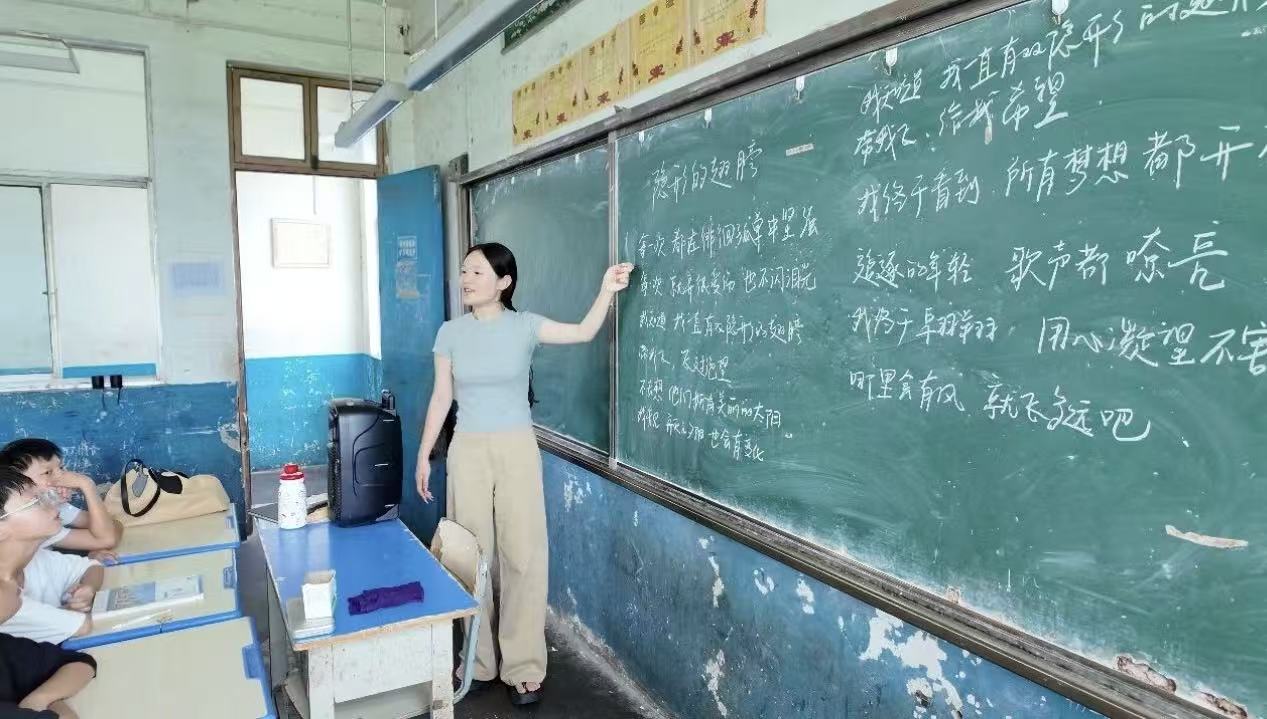 隐形的翅膀
每一次 都在徘徊孤单中坚强
每次 就算很受伤 也不闪泪光
我知道 我一直有双隐形的翅膀
带我飞 飞过绝望
不去想 他们拥有美丽的太阳
我知道 我一直有双隐形的翅
带我飞，给我希望
我终于看到 所有梦想 都开
追逐的年轻 歌声都嘹亮
我终于翱翔 用心凝望不害
哪里会有风 就飞多远吧